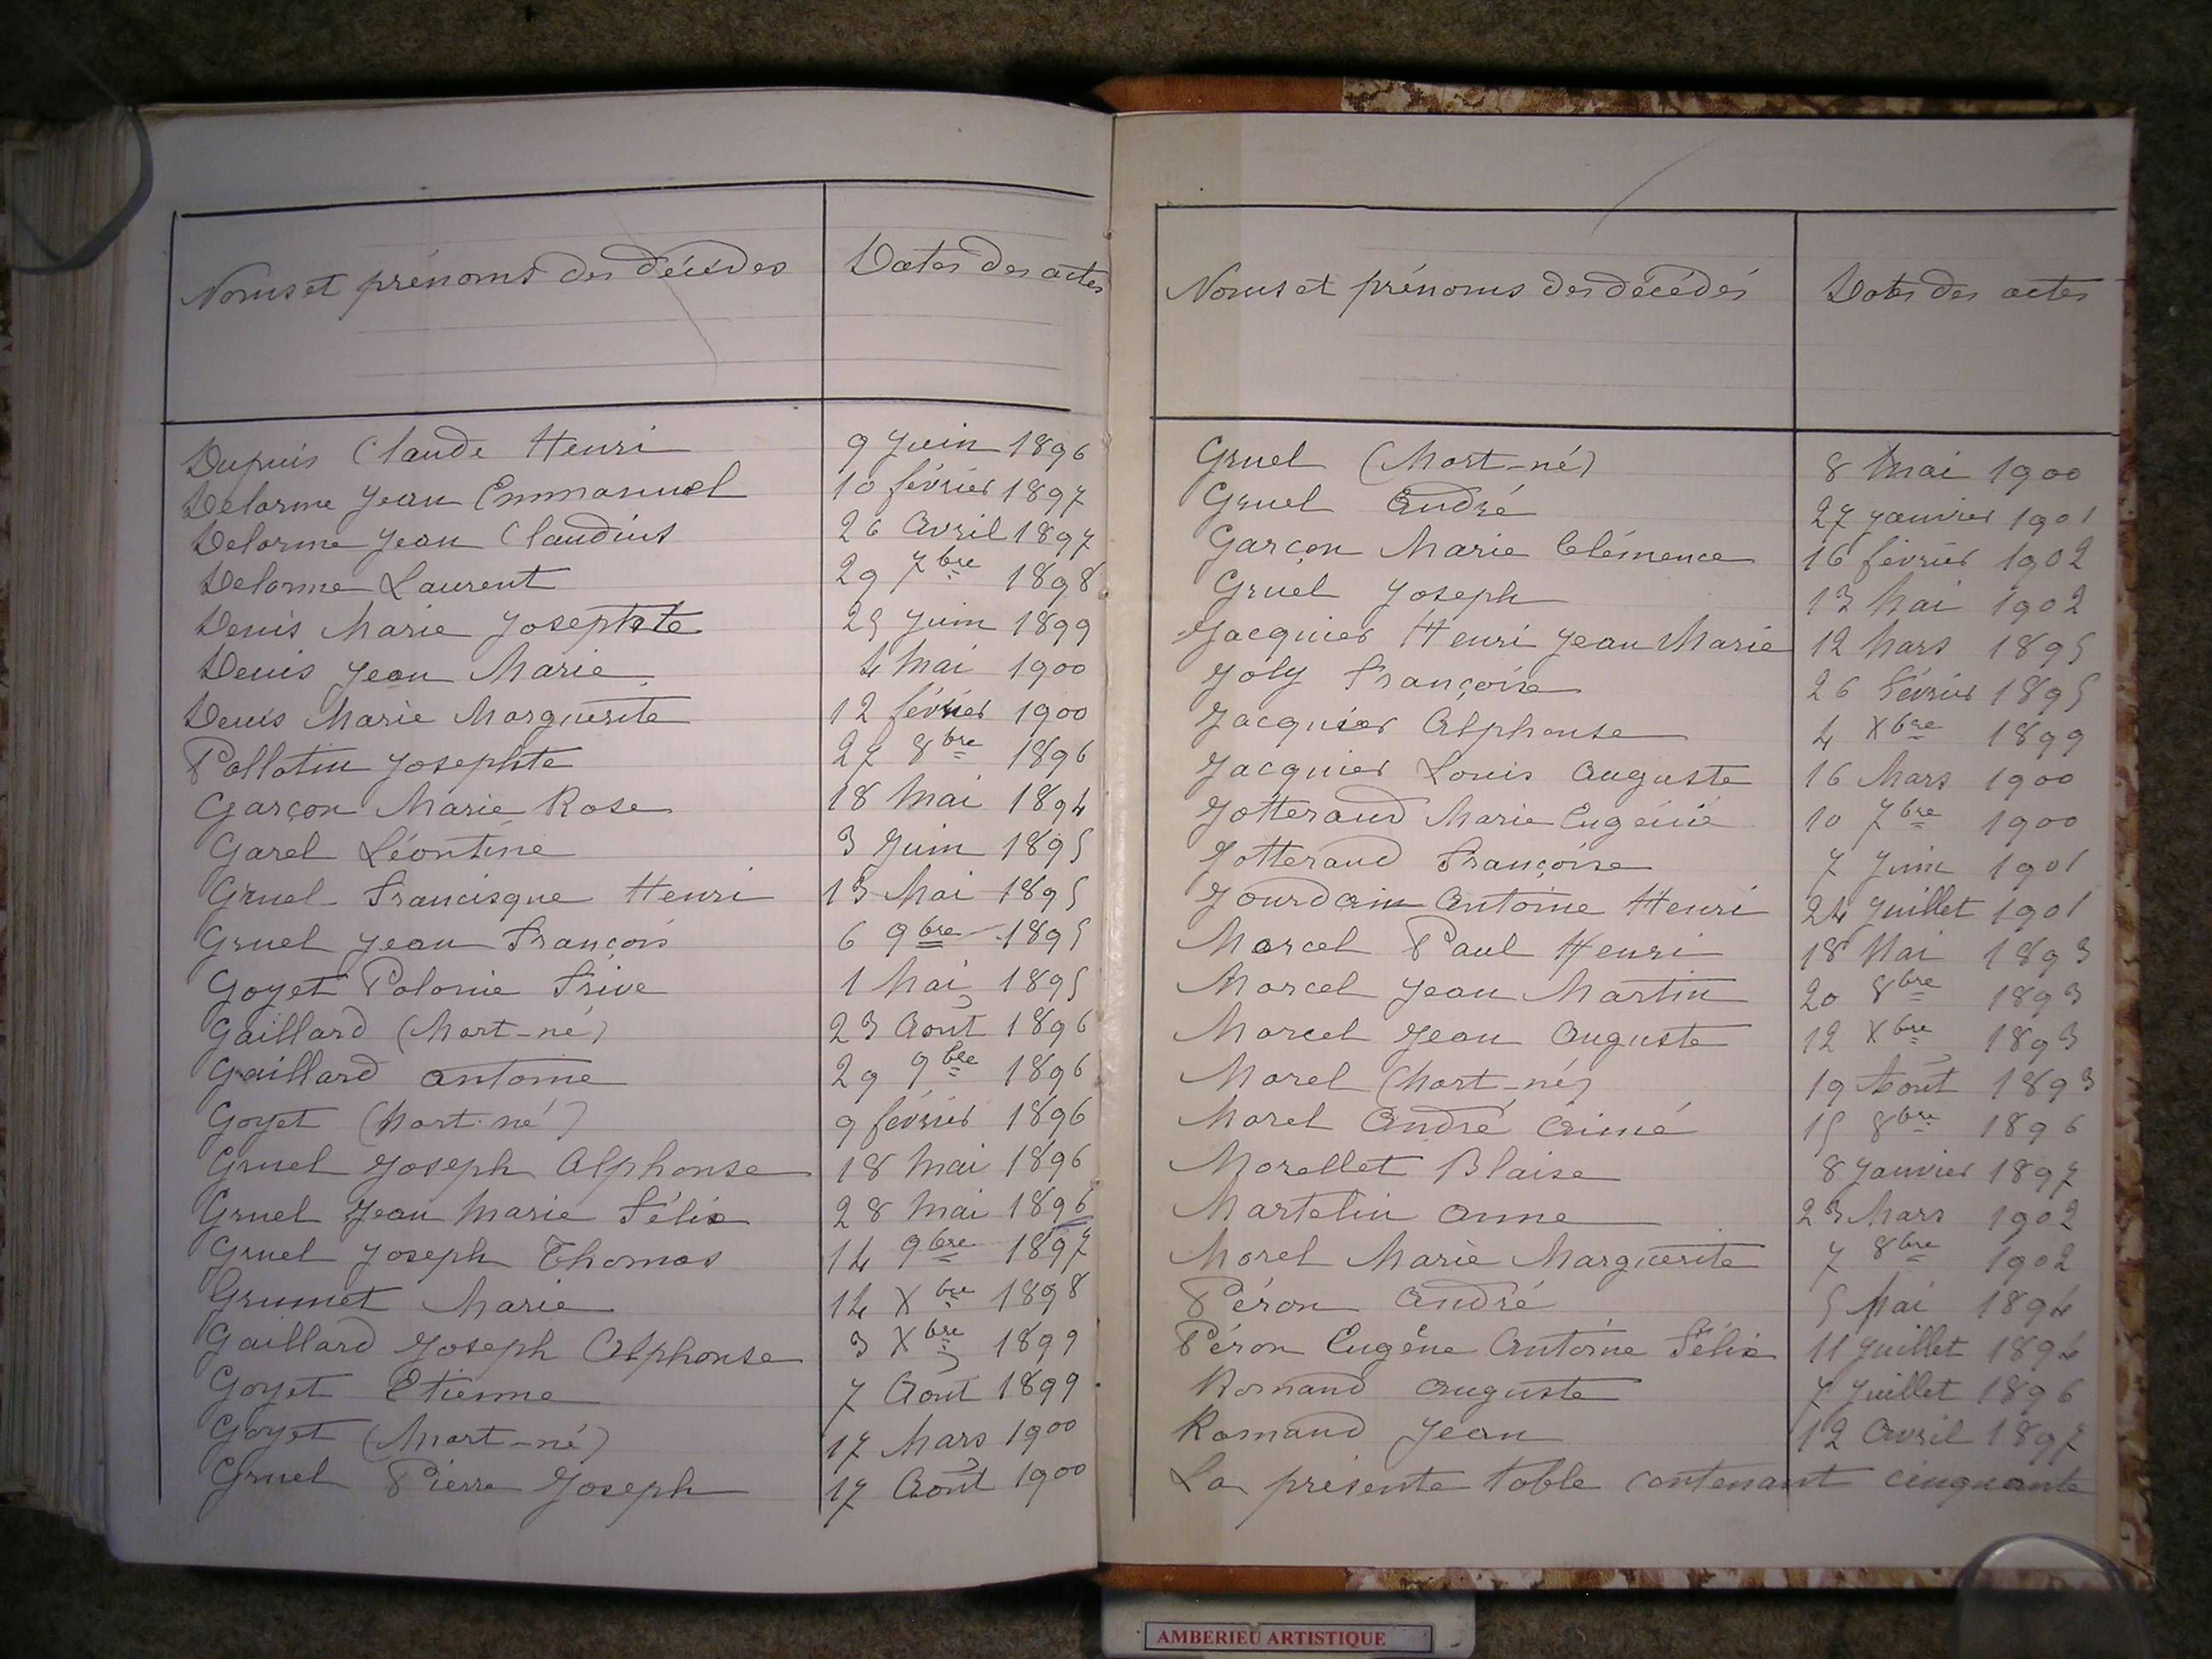 Noms et prénoms des décédés Dates des actes
Dupuis Claude Henri 9 Juin 1896
Delorme Jean Emmanuel 10 février 1897
Delorme Jean Claudius 26 Avril 1897
Delorme Laurent 29 7bre 1898
Denis Marie Josephte 25 Juin 1899
Denis Jean Marie 4 Mai 1900
Denis Marie Marguerite 12 février 1900
Pollotin Josephte 27 8bre 1896
Garçon Marie Rose 18 Mai 1894
Garel Léontine 3 Juin 1895
Gruel Francisque Henri 13 Mai 1895
Gruel Jean François 6 9bre 1895
Goyet Polonie 1 Mai 1895
Gaillard (Mort-né) 23 Août 1896
Gaillard Antoine 29 9bre 1896
Goyet (Mort-né) 9 février 1896
Gruel Joseph Alphonse 18 Mai 1896
Gruel Jean Marie Félix 28 Mai 1896
Gruel Joseph Thomas 14 9bre 1897
Grumet Marie 14 Xbre 1898
Gaillard Joseph Alphonse 3 Xbre 1899
Goyet Etienne 7 Août 1899
Goyet (Mort-né) 17 Mars 1900
Gruel Pierre Joseph 17 Août 1900
Noms et prénoms des décédés Dates des actes
Gruel (Mort-né) 8 Mai 1900
Gruel André 27 Janvier 1901
Garçon Marie Clémence 16 février 1902
Gruel Joseph 13 Mai 1902
Jacquier Henri Jean Marie 12 Mars 1895
Joly Françoise 26 Février 1895
Jacquier Alphonse 4 Xbre 1899
Jacquier Louis Auguste 16 Mars 1900
Jotterand Marie Eugénie 10 7bre 1900
Jotterand Françoise 7 Juin 1901
Jourdain Antoine Henri 24 Juillet 1901
Marcel Paul Henri 18 Mai 1893
Marcel Jean Martin 20 8bre 1893
Marcel Jean Auguste 12 Xbre 1893
Morel (Mort-né) 19 Août 1893
Morel André Aimé 15 8bre 1896
Morellet Blaise 8 Janvier 1897
Martelin Anne 23 Mars 1902
Morel Marie Marguerite 7 8bre 1902
Péron André 5 Mai 1894
Péron Eugène Antoine Félix 11 Juillet 1894
Romand Auguste 7 Juillet 1896
Romand Jean 12 Avril 1897
La présente table contenant cinquante
AMBERIEU ARTISTIQUE